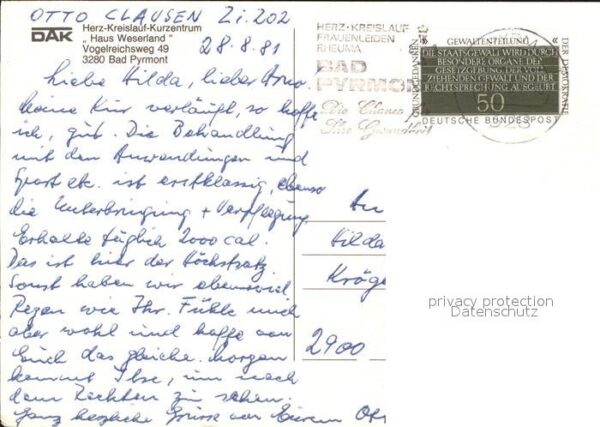 OTTO CLAUSEN Zi. 202
DAK
Herz-Kreislauf-Kurzentrum
" Haus Weserland "
Vogelreichsweg 49
3280 Bad Pyrmont
28.8.81
Liebe Hilda, lieber Arno
meine Kur verläuft, so hoffe
ich, gut. Die Behandlung
mit den Anwendungen und
Sport etc. ist erstklassig, ebenso
die Unterbringung + Verpflegung.
Erhalte täglich 2000 cal.
Das ist hier der Höchstsatz.
Sonst haben wir ebensoviel
Regen wie Ihr. Fühle mich
aber wohl und hoffe von
Euch das gleiche. Morgen
kommt Ilse, um nach
dem Rechten zu sehen.
Ganz herzliche Grüsse von Eurem Otto
HERZ-KREISLAUF
FRAUENLEIDEN
RHEUMA
BAD
PYRMONT
Die Chance
Ihre Gesundheit
GRUNDGEDANKEN
GEWALTENTEILUNG
DER DEMOKRATIE
DIE STAATSGEWALT WIRD DURCH
BESONDERE ORGANE DER
GESETZGEBUNG, DER VOLL
ZIEHENDEN GEWALT UND DER
RECHTSPRECHUNG AUSGEÜBT
50
DEUTSCHE BUNDESPOST
An
Hilda
Kröge
2900
privacy protection
Datenschutz